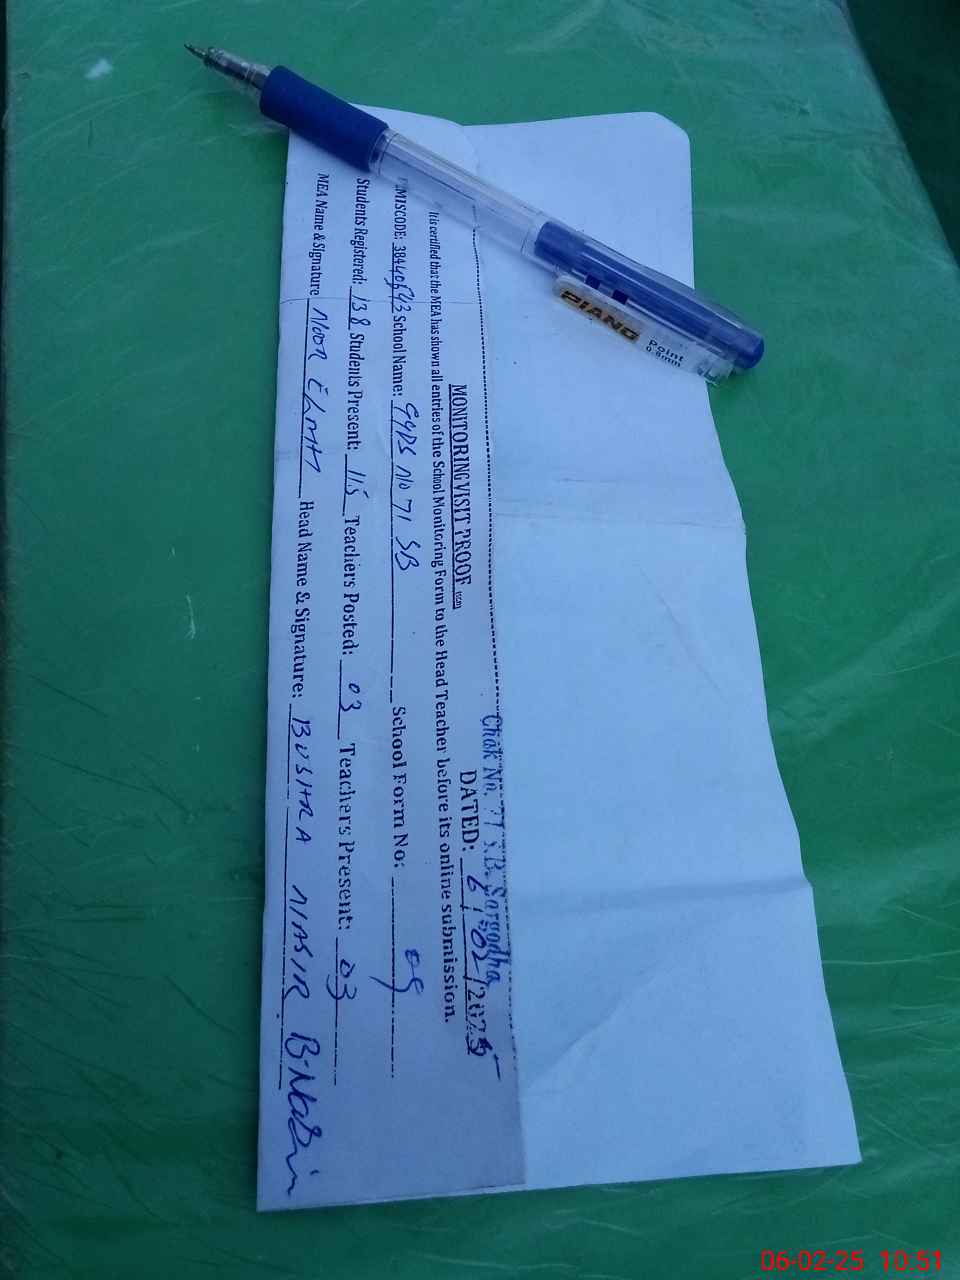 Chak No. 71 S.B. Sargodha
MONITORING VISIT PROOF DATED: 6/02/2025
It is certified that the MEA has shown all entries of the School Monitoring Form to the Head Teacher before its online submission.
EMISCODE: School Name: GGPS NO 71 SB School Form No:
Students Registered: 138 Students Present: 115 Teachers Posted: 03 Teachers Present: 03
MEA Name & Signature Noor Head Name & Signature: BUSHRA NASIR
PIANO
Point
0.8mm
06-02-25 10:51